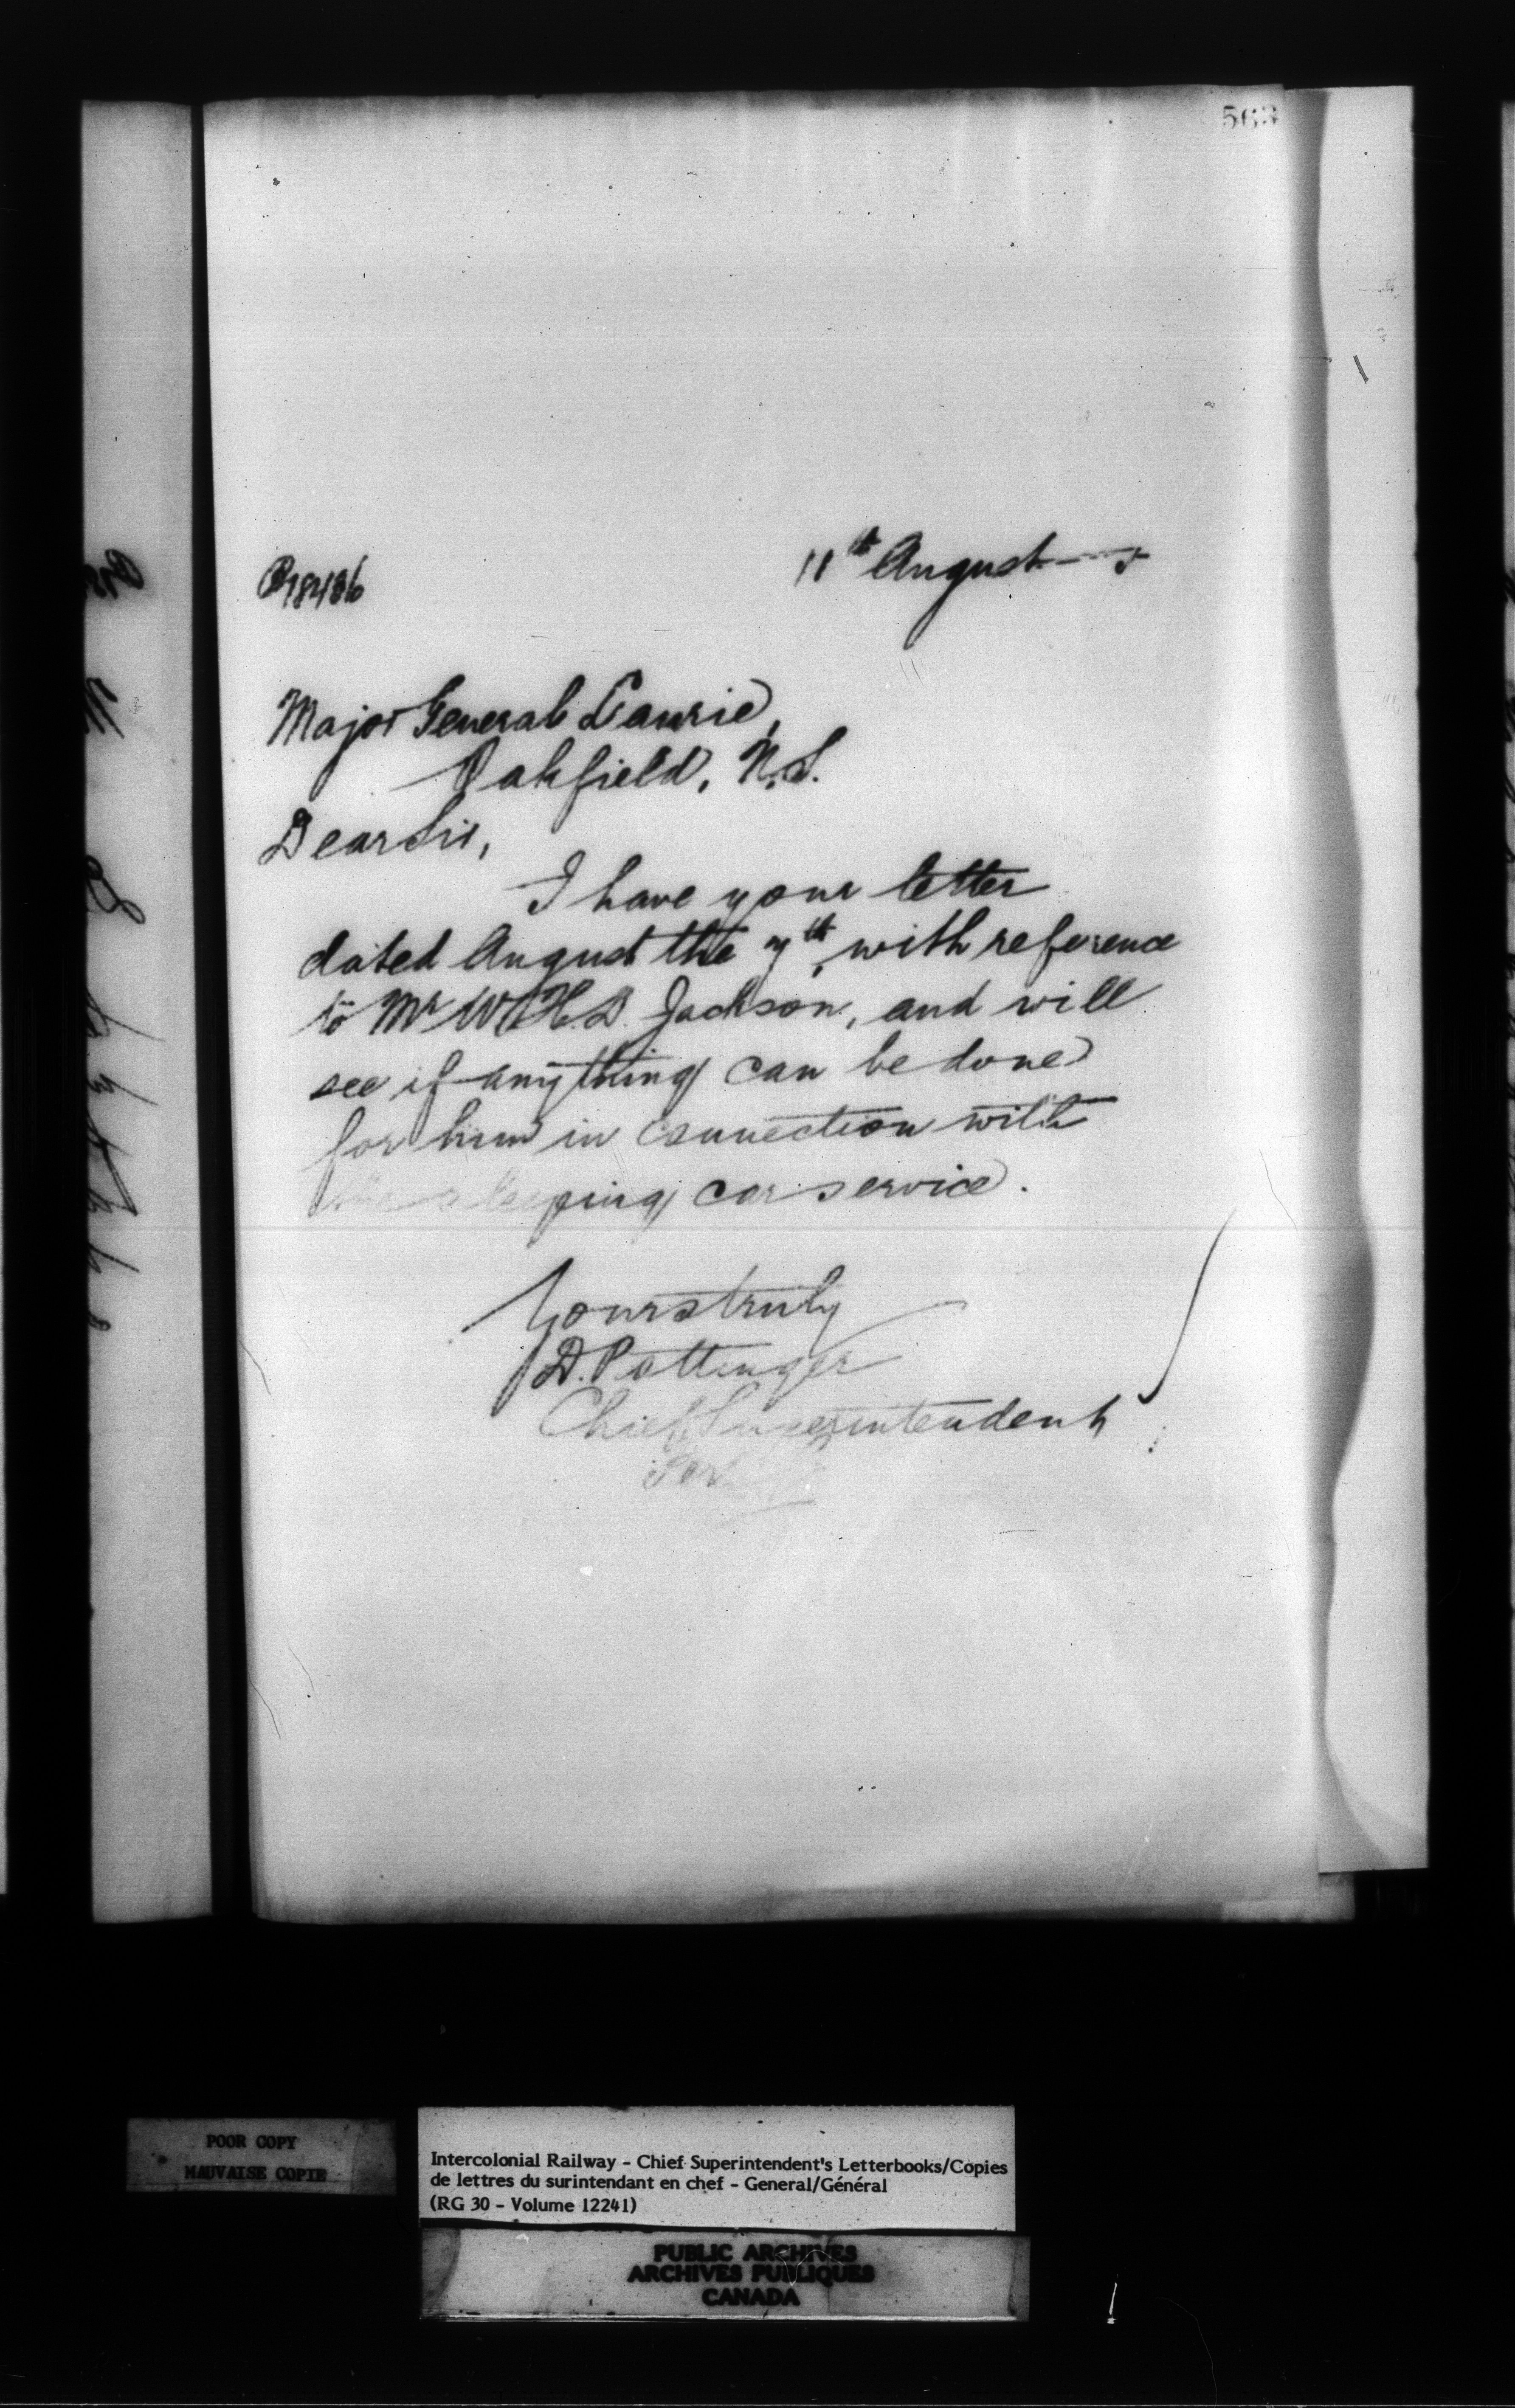 563
11th August 5
P18486
Major General Laurie,
Oakfield, N.S.
Dear Sir,
I have your letter
dated August the 7th, with reference
to Mr W.H.D. Jackson, and will
see if anything can be done
for him in connection with
the sleeping car service.
Yours truly
D. Pottinger
Chief Superintendent
Per
POOR COPY
MAUVAISE COPIE
Intercolonial Railway - Chief Superintendent's Letterbooks/Copies
de lettres du surintendant en chef - General/Général
(RG 30 - Volume 12241)
PUBLIC ARCHIVES
ARCHIVES PUBLIQUES
CANADA